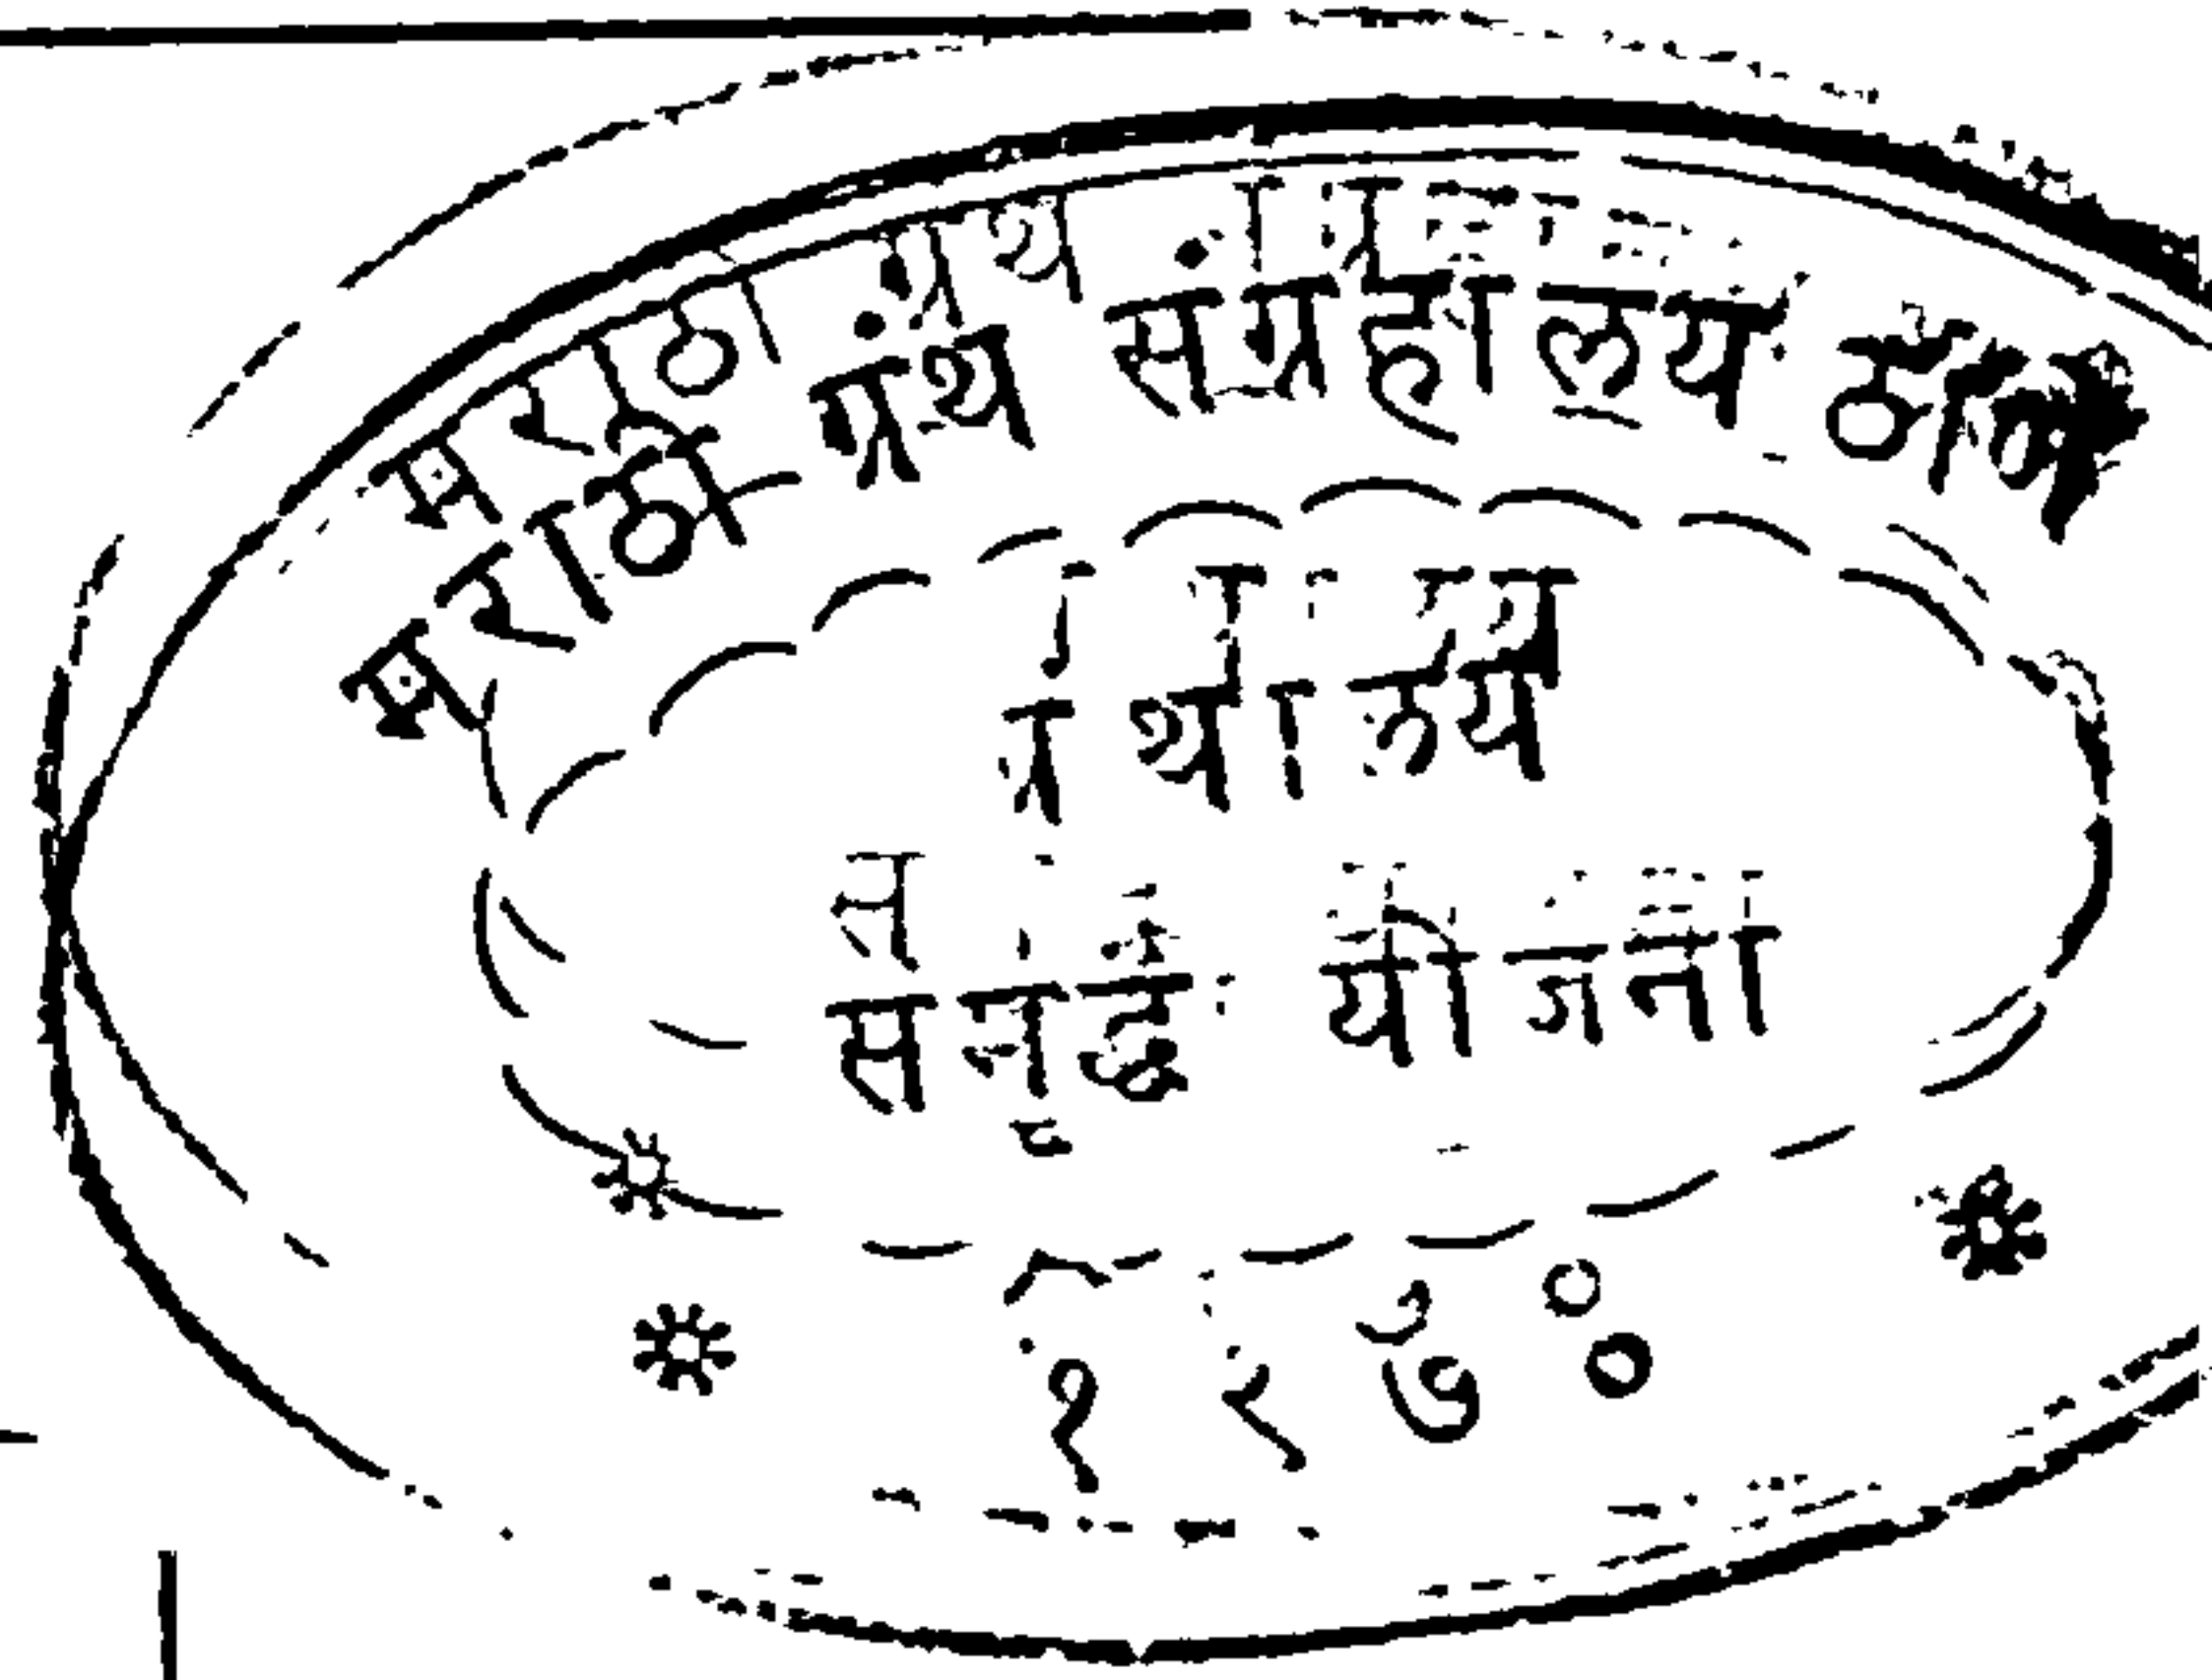 मराठी ग्रंथ संग्रहालय ठाणे
ग्रंथालय
समृद्धी योजना
१९७०